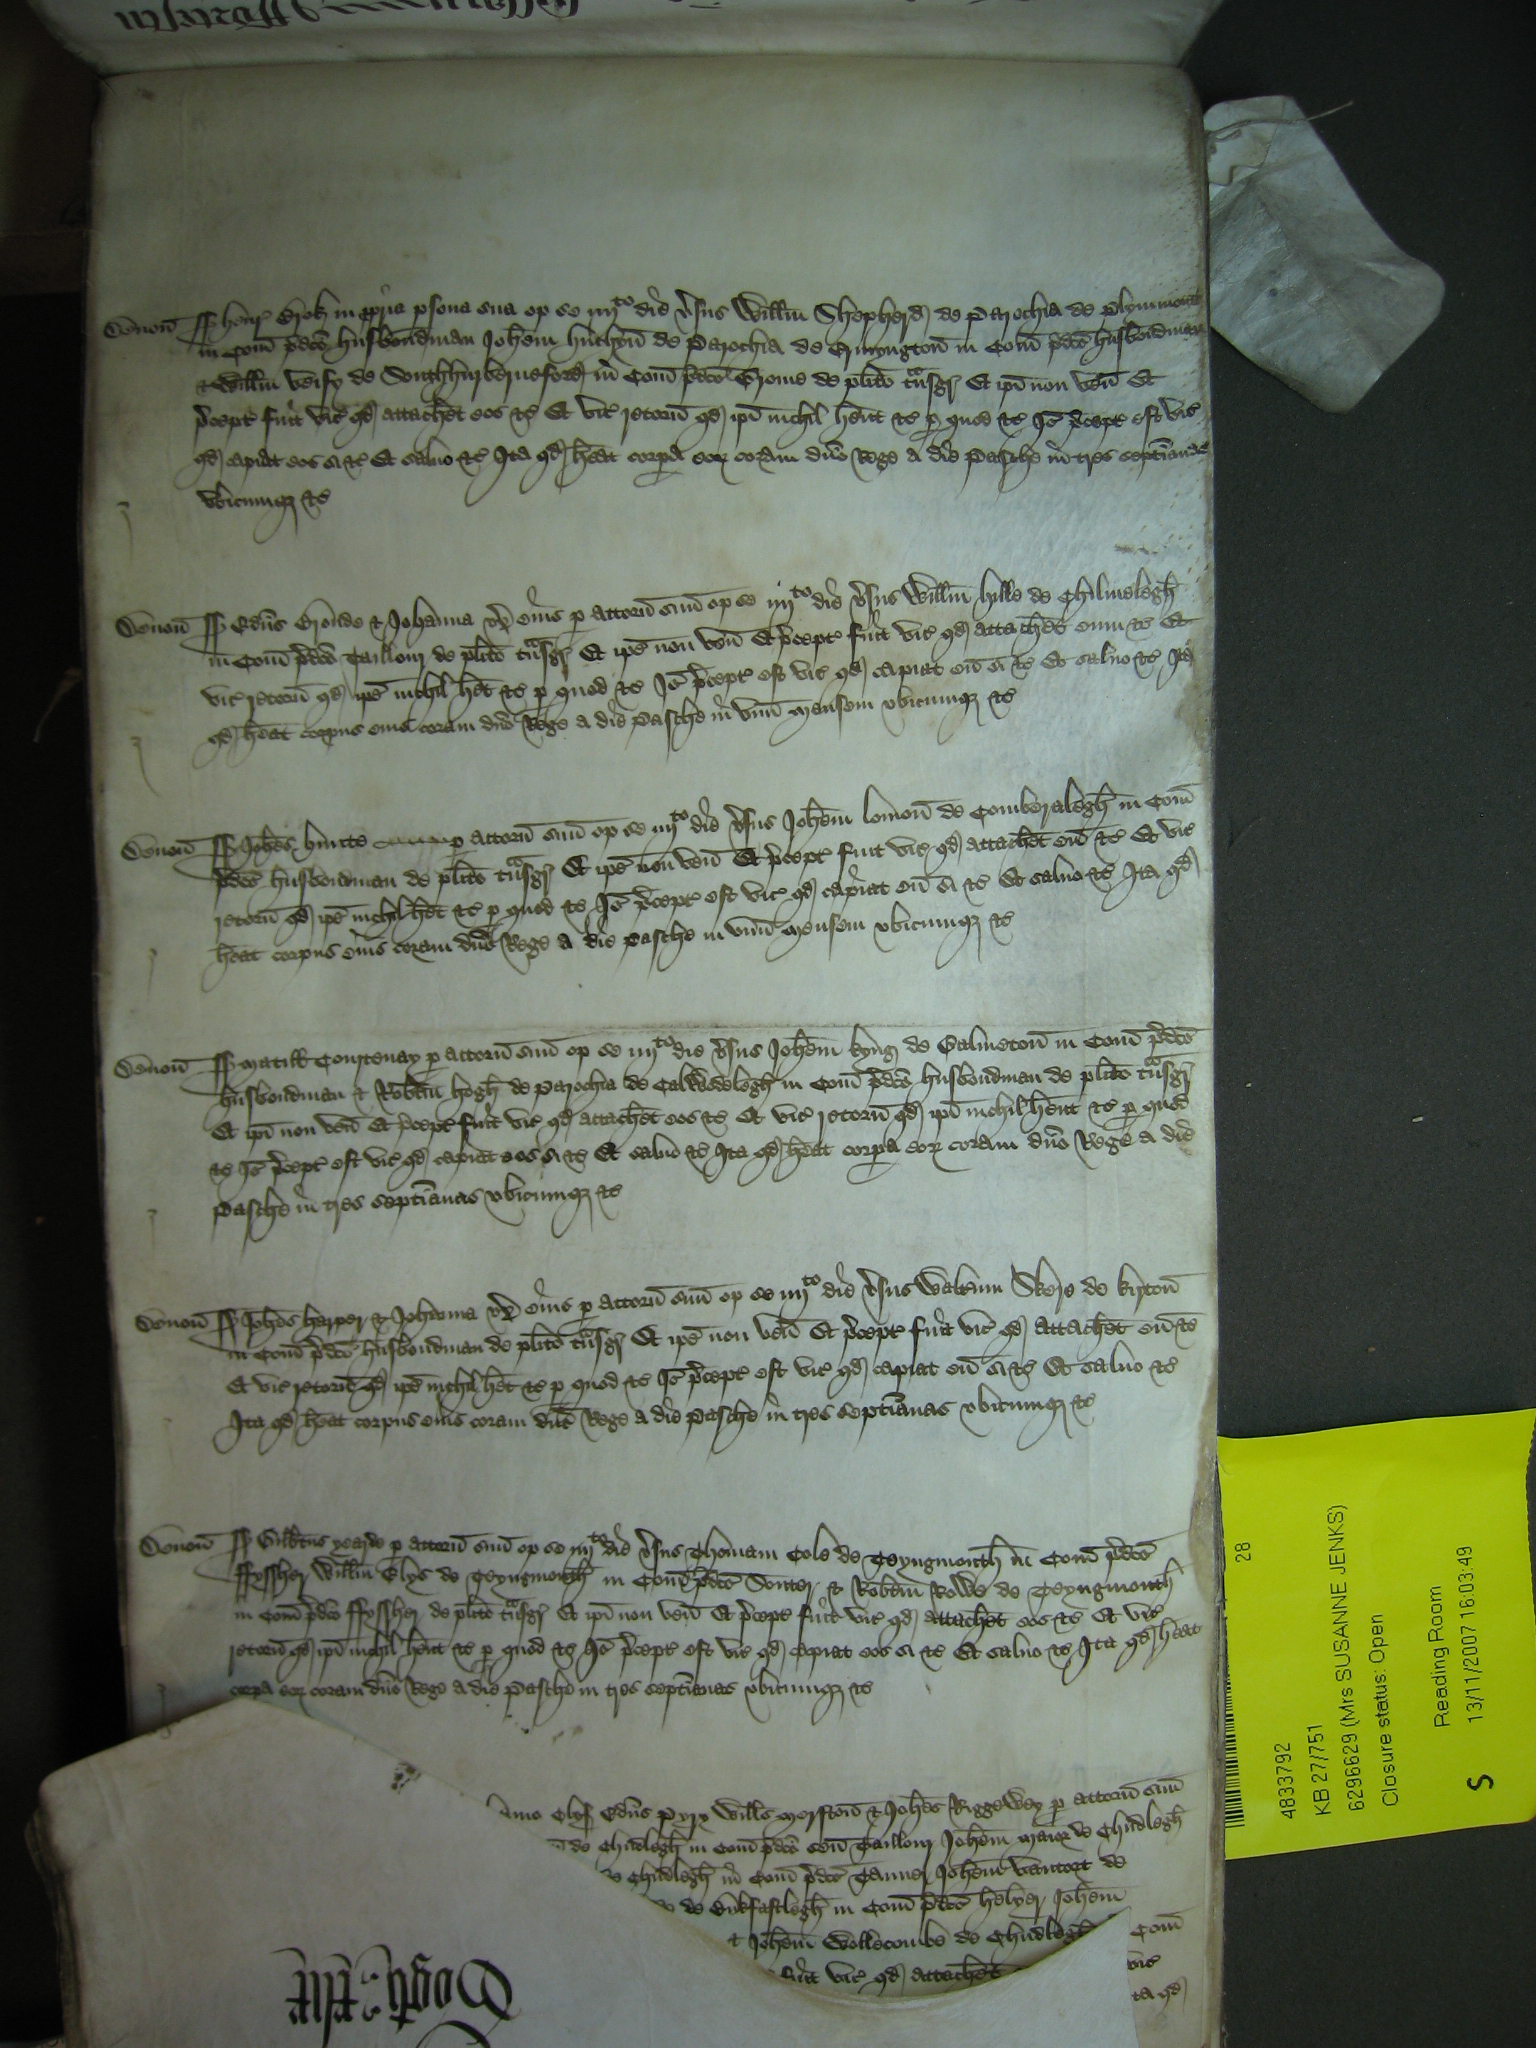 Deuon ss henr Brok in ppria psona sua op se iiijto die vsus Willm Shepherd de Parochia de Plymmouth
in Com pdco husbondman Johem huchyn de Parochia de Ermyngton in Com pdco husbondman
& Willm Veisy de Southhurberneford in Com pdco Grome de plito tnsgr Et ipi non ven Et
pcept fuit vic qd attachet eos &c Et vic retorn qd ipi nichil hent &c p quod &c Jo pcept est vic
qd capiat eos si &c Et saluo &c Ita qd heat corpa eor coram dno Rege a die Pasche in tres septianas
vbicumq &c
Deuon ss Edus & Johanna vx eius p attorn suu op se iiijto die vsus Willm hille de Chilmelegh
in Com pdco Taillour de plito tnsgr Et ipe non ven Et pcept fuit vic qd attachet eum &c Et
vic retorn qd ipe nichil het &c p quod &c Jo pcept est vic qd capiat eu si &c Et saluo &c Ita
qd heat corpus eius coram dno Rege a die Pasche in vnu mensem vbicumq &c
Deuon ss Johes hunte p attorn suu op se iiijto die vsus Johem lomon de Comberalegh in Com
pdco husbondman de plito tnsgr Et ipe non ven Et pcept fuit vic qd attachet eu &c Et vic
retorn qd ipe nichil het &c p quod &c Jo pcept est vic qd capiat eu si &c Et saluo &c Ita qd
heat corpus eius coram dno Rege a die Pasche in vnu mensem vbicumq &c
Deuon ss Matill Courtenay p attorn suu op se iiijto die vsus Johem kyng de Galmeton in Com pdco
husbondman & Robtm hogh de Parochia de Calwodelegh in Com pdco husbondman de plito tnsgr
Et ipi non ven Et pcept fuit vic qd attachet eos &c Et vic retorn qd ipi nichil hent &c p quod
&c Jo pcept est vic qd capiat eos si &c Et saluo &c Ita qd heat corpa eor coram dno Rege a die
Pasche in tres septianas vbicumq &c
Deuon ss Johes harper & Johanna vx eius p attorn suu op se iiijto die vsus Walterum Skere de kyrton
in Com pdco husbondman de plito tnsgr Et ipe non ven Et pcept fuit vic qd attachet eu &c
Et vic retorn qd ipe nichil het &c p quod &c Jo pcept est vic qd capiat eu si &c Et saluo &c
Ita qd heat corpus eius coram dno Rege a die Pasche in tres septianas vbicumq &c
Deuon ss Gilbtus yearde p attorn suu op se iiijto die vsus Thomam Cole de Teyngmouth in Com pdco
ffyssher Willm Elys de Teyngmouth in Com pdco Souter & Robtm Rowe de Teyngmouth
in Com pdco ffyssher de plito tnsgr Et ipi non ven Et pcept fuit vic qd attachet eos &c Et vic
retorn qd ipi nichil hent &c p quod &c Jo pcept est vic qd capiat eos si &c Et saluo &c Ita qd heat
corpa eor coram dno Rege a die Pasche in tres septianas vbicumq &c
Edus Pyry Wills Merston & Johes Riggewey p attorn suu
de Chudlegh in Com pdco Taillour Johem maior de Chudlegh
Chudlegh in Com pdco Tanner Johem Vantort de
de Bukfastlegh in Com pdco helyer Johem
& Johem Wollecombe de Chudlegh Com
fuit vic qd attachet vic
ita qd
28
4833792
KB 27/751
6296629 (Mrs SUSANNE JENKS)
Closure status: Open
Reading Room
13/11/2007 16:03:49
S